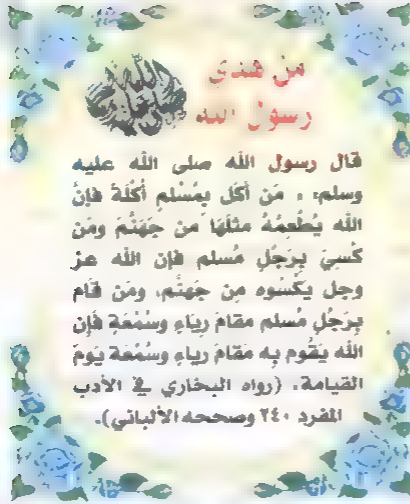 من هدي
رسول الله
قال رسول الله صلى الله عليه
وسلم: « مَن أكَل بِمُسْلمٍ أُكْلَةً فإنَّ
الله يُطْعِمُهُ مثلَهَا من جَهَنَّمَ ومَن
كُسِيَ بِرَجُلٍ مُسلم فإن الله عز
وجل يكْسُوه مِن جهنَّم، ومَن قَام
بِرَجُلٍ مُسلم مقامَ رِيَاءٍ وسُمْعَةٍ فَإن
الله يَقُوم بِه مَقامَ رياءٍ وسُمْعَة يَومَ
القيامة. (رواه البخاري في الأدب
المفرد ٢٤٠ وصححه الألباني).